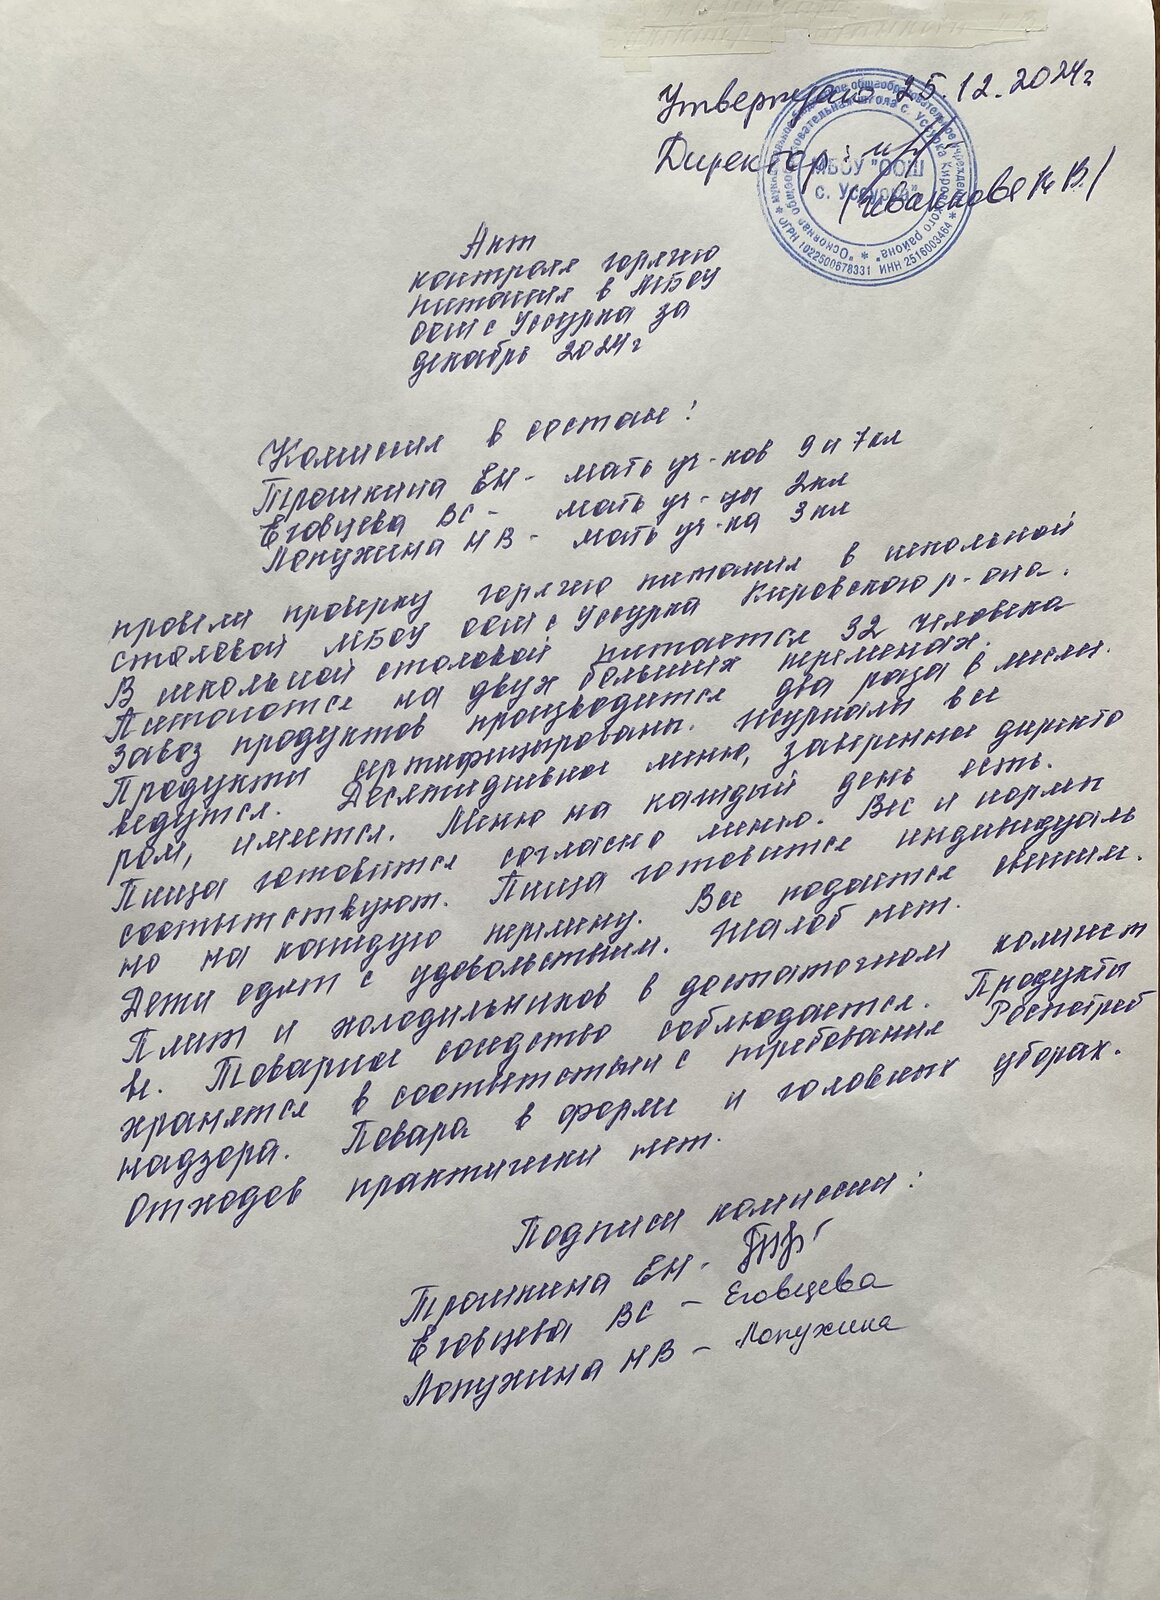 Утверждаю 25.12.2024г
Директор:
МБОУ "ООШ
с. Уссурка"
ОГРН 1022500678331 ИНН 2516003464
Акт
контроля горячего
питания в МБОУ
ООШ с Уссурка за
декабрь 2024г
Комиссия в составе:
Трошкина ЕН - мать уч-ков 9 и 7кл
Еговцева ВС - мать уч-цы 2кл
Лопухина НВ - мать уч-ка 3кл
провели проверку горячего питания в школьной
столовой МБОУ ООШ с Уссурка Кировского р-она.
В школьной столовой питается 32 человека
Питаются на двух больших переменах.
Завоз продуктов производится два раза в месяц.
Продукты сертифицированы. Журналы все
ведутся. Десятидневное меню, заверенное директо
ром, имеется. Меню на каждый день есть.
Пища готовится согласно меню. Вес и нормы
соответствуют. Пища готовится индивидуаль
но на каждую перемену. Все подается свежим.
Дети едят с удовольствием. Жалоб нет.
Плит и холодильников в достаточном количест
ве. Товарное соседство соблюдается. Продукты
хранятся в соответствии с требования Роспотреб
надзора. Повара в форме и головных уборах.
Отходов практически нет.
Подписи комиссии:
Трошкина ЕН -
Еговцева ВС - Еговцева
Лопухина НВ - Лопухина